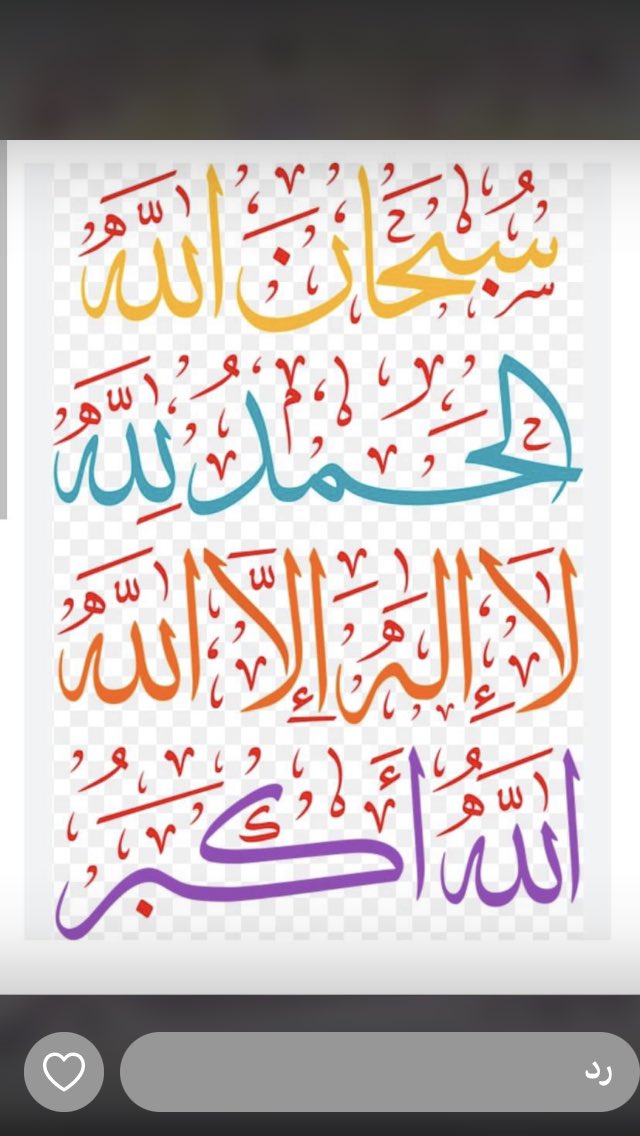 سُبْحَانَ اللَّهِ
الْحَمْدُ لِلَّهِ
لَا إِلَهَ إِلَّا اللَّهُ
اللَّهُ أَكْبَرُ
رد